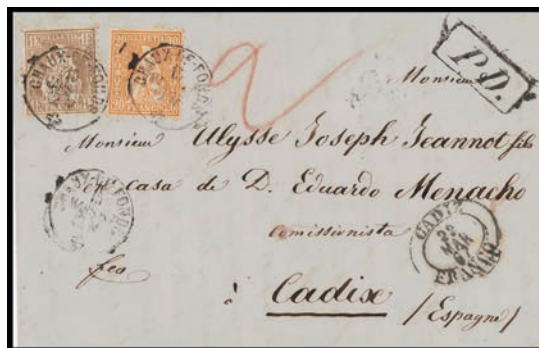 CHAUX-DE-FONDS
CHAUX-DE-FONDS
2
P.D.
Monsieur
Monsieur Ulysse Joseph Jeannot fils
en casa de D. Eduardo Menacho
Comissionista
CHAUX-DE-FONDS
CADIZ
22
MAR
FRANCO
fco
à Cadix
/Espagne/